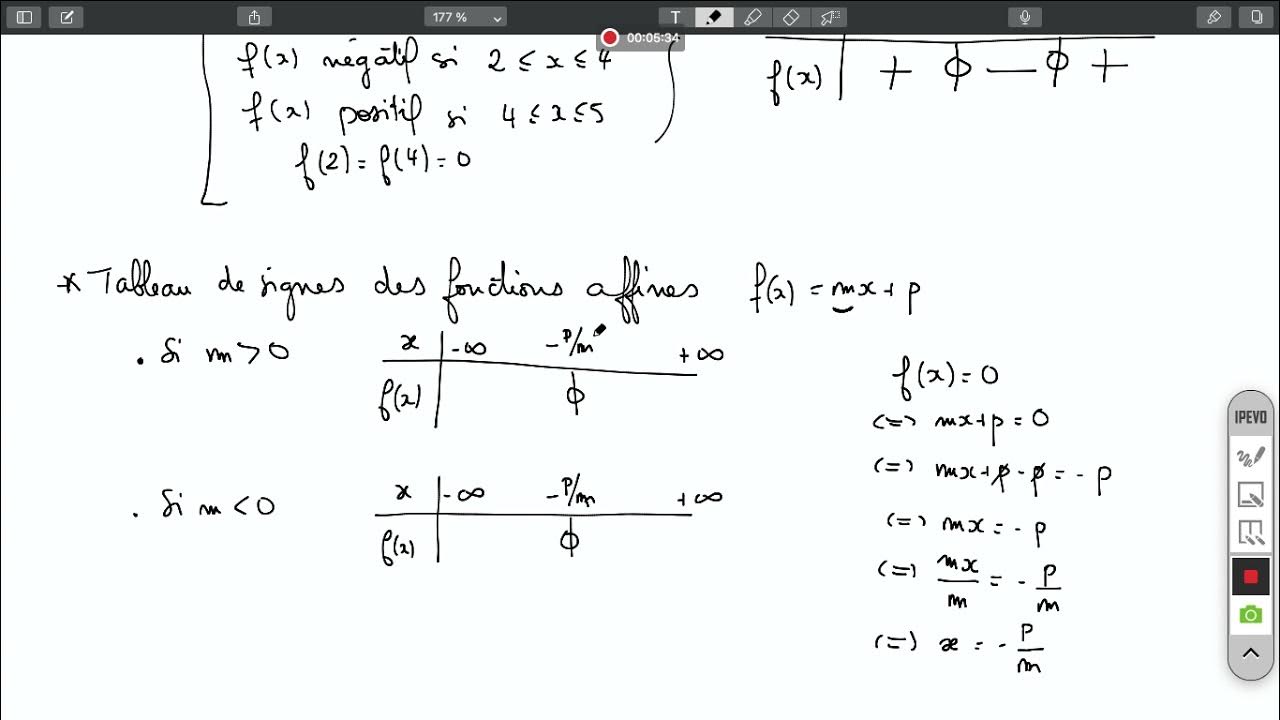 177 %
T
00:05:34
f(x) négatif si 2 ≤ x ≤ 4
f(x) positif si 4 ≤ x ≤ 5
f(2) = f(4) = 0
f(x) + 0 — 0 +
* Tableau de signes des fonctions affines f(x) = mx + p
. Si m > 0
x -∞ -P/m +∞
f(x) 0
. Si m < 0
x -∞ -P/m +∞
f(x) 0
f(x) = 0
(=) mx+p = 0
(=) mx+p - p = - p
(=) mx = - p
(=) mx/m = - P/m
(=) x = - P/m
IPEVO